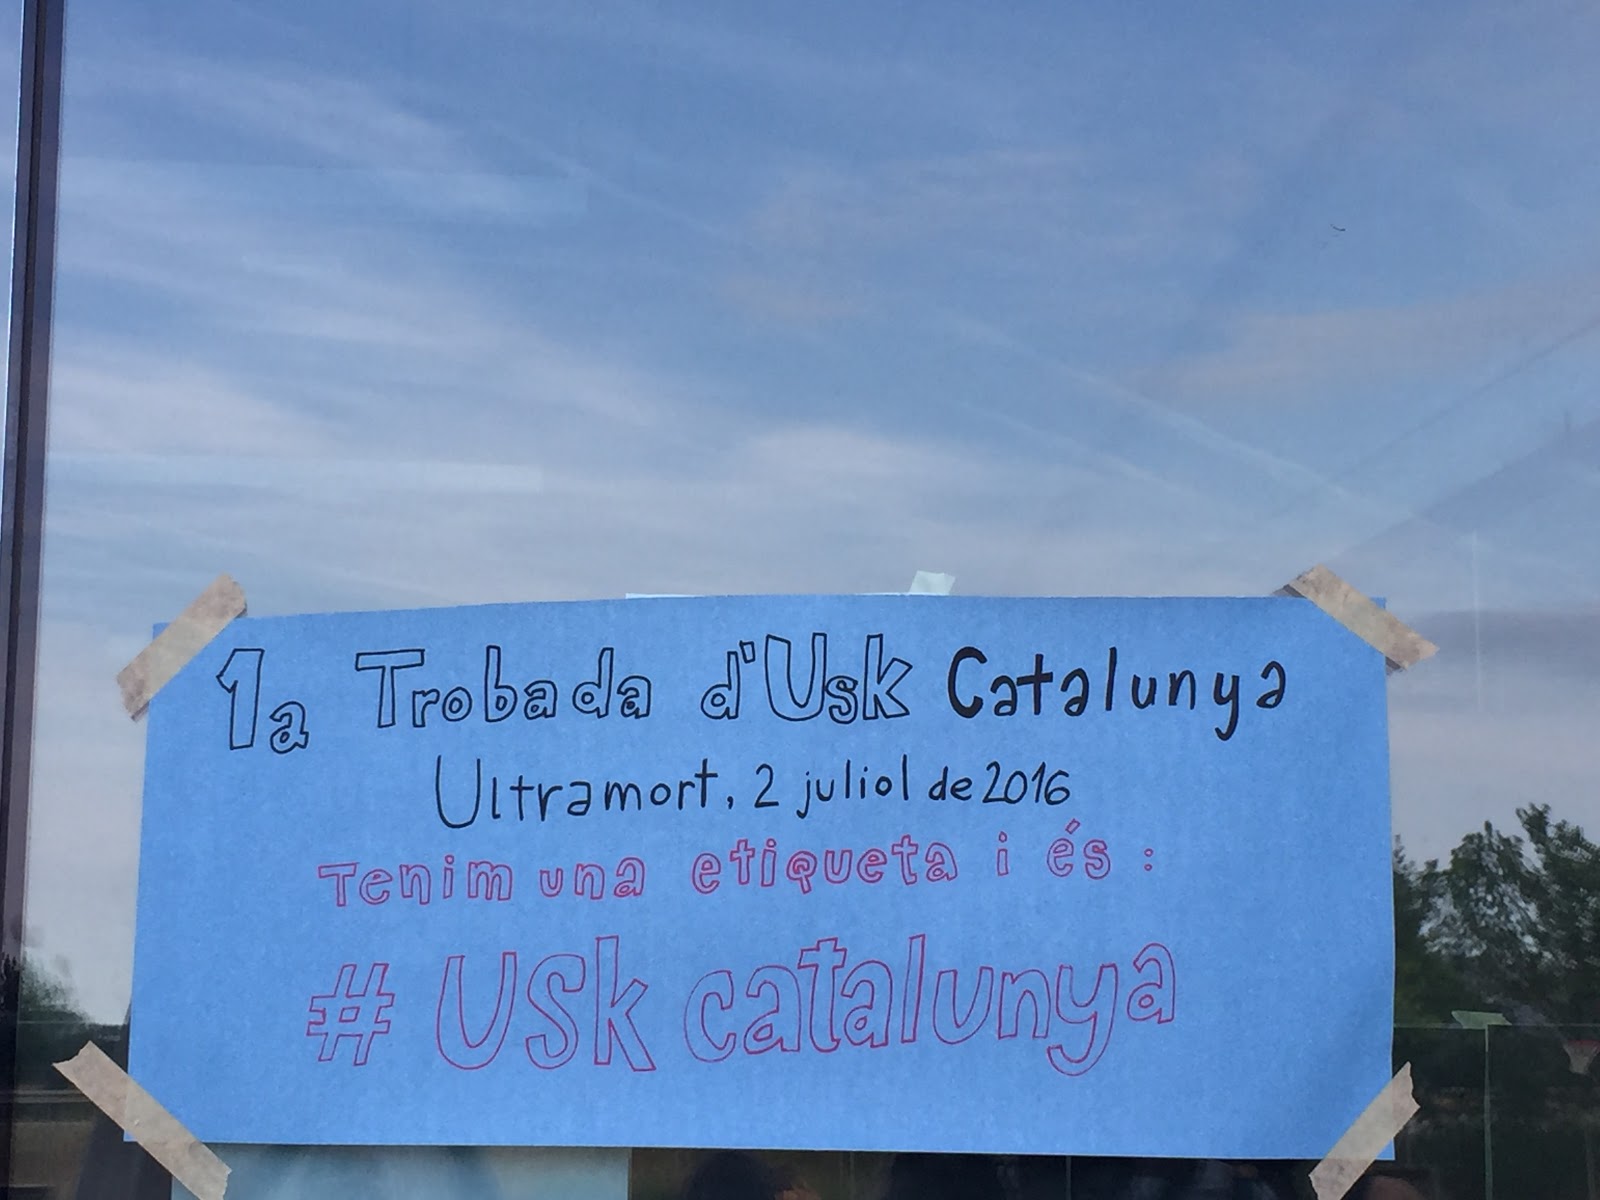 1a Trobada d'Usk Catalunya
Ultramort, 2 juliol de 2016
Tenim una etiqueta i és:
# Usk catalunya